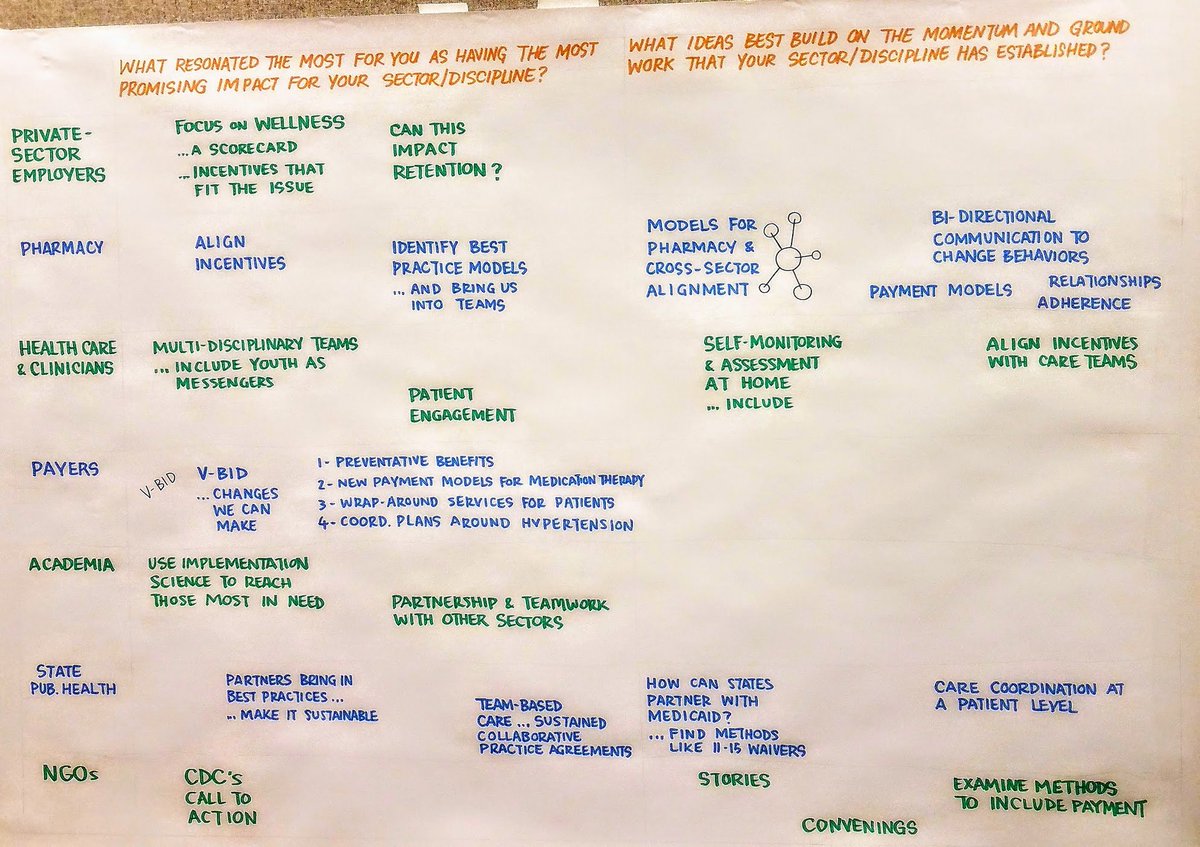 WHAT RESONATED THE MOST FOR YOU AS HAVING THE MOST
PROMISING IMPACT FOR YOUR SECTOR/DISCIPLINE?
WHAT IDEAS BEST BUILD ON THE MOMENTUM AND GROUND
WORK THAT YOUR SECTOR/DISCIPLINE HAS ESTABLISHED?
PRIVATE-
SECTOR
EMPLOYERS
FOCUS ON WELLNESS
...A SCORECARD
...INCENTIVES THAT
FIT THE ISSUE
CAN THIS
IMPACT
RETENTION?
PHARMACY
ALIGN
INCENTIVES
IDENTIFY BEST
PRACTICE MODELS
...AND BRING US
INTO TEAMS
MODELS FOR
PHARMACY &
CROSS-SECTOR
ALIGNMENT
BI-DIRECTIONAL
COMMUNICATION TO
CHANGE BEHAVIORS
PAYMENT MODELS
RELATIONSHIPS
ADHERENCE
HEALTH CARE
& CLINICIANS
MULTI-DISCIPLINARY TEAMS
...INCLUDE YOUTH AS
MESSENGERS
PATIENT
ENGAGEMENT
SELF-MONITORING
& ASSESSMENT
AT HOME
...INCLUDE
ALIGN INCENTIVES
WITH CARE TEAMS
PAYERS
V-BID
V-BID
...CHANGES
WE CAN
MAKE
1- PREVENTATIVE BENEFITS
2- NEW PAYMENT MODELS FOR MEDICATION THERAPY
3- WRAP-AROUND SERVICES FOR PATIENTS
4- COORD. PLANS AROUND HYPERTENSION
ACADEMIA
USE IMPLEMENTATION
SCIENCE TO REACH
THOSE MOST IN NEED
PARTNERSHIP & TEAMWORK
WITH OTHER SECTORS
STATE
PUB. HEALTH
PARTNERS BRING IN
BEST PRACTICES...
...MAKE IT SUSTAINABLE
TEAM-BASED
CARE...SUSTAINED
COLLABORATIVE
PRACTICE AGREEMENTS
HOW CAN STATES
PARTNER WITH
MEDICAID?
...FIND METHODS
LIKE 11-15 WAIVERS
CARE COORDINATION AT
A PATIENT LEVEL
NGOs
CDC's
CALL TO
ACTION
STORIES
CONVENINGS
EXAMINE METHODS
TO INCLUDE PAYMENT